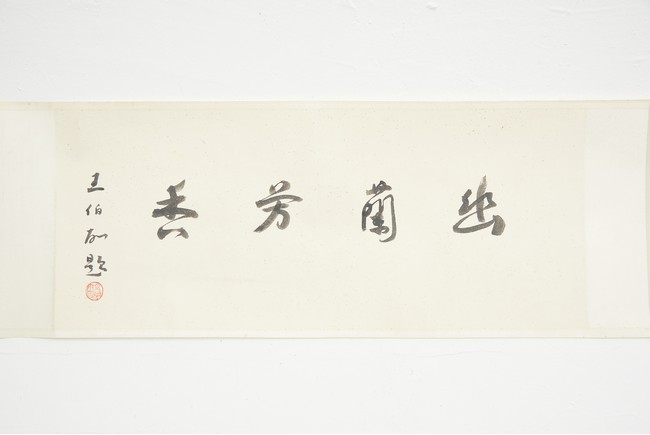 幽蘭芳香
王伯敏題